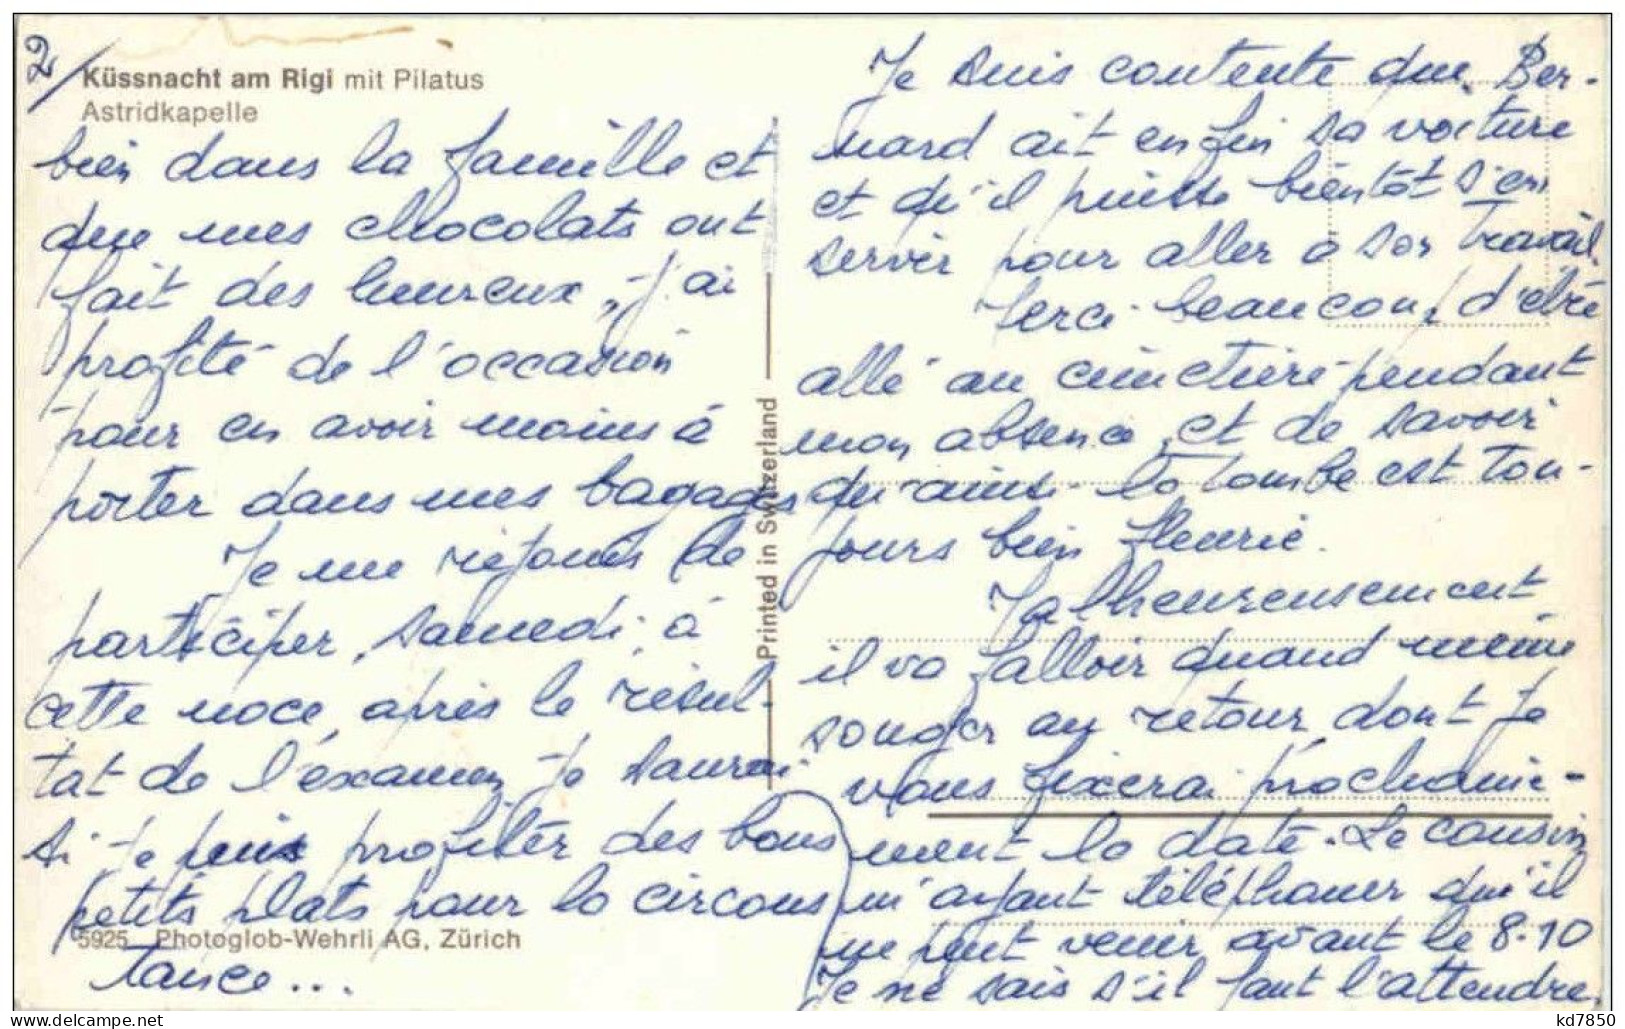 2/
Küssnacht am Rigi mit Pilatus
Astridkapelle
bien dans la famille et
que mes chocolats ont
fait des heureux, j'ai
profité de l'occasion
pour en avoir moins à
porter dans mes bagages
Je me réjouis de
participer, samedi, à
cette noce, après le résul-
tat de l'examen je saurai
si je puis profiter des bons
petits plats pour la circons
tance...
5925 Photoglob-Wehrli AG, Zürich
Printed in Switzerland
Je suis contente que Ber-
nard ait enfin sa voiture
et qu'il puisse bientôt s'en
servir pour aller à son travail.
Merci beaucoup d'être
allé au cimetière pendant
mon absence, et de savoir
qu'ainsi la tombe est tou-
jours bien fleurie.
Malheureusement
il va falloir quand même
songer au retour, dont je
vous fixerai prochaine-
ment la date. Le cousin
m'ayant téléphoner qu'il
ne peut venir avant le 8-10
Je ne sais s'il faut l'attendre.
kd7850